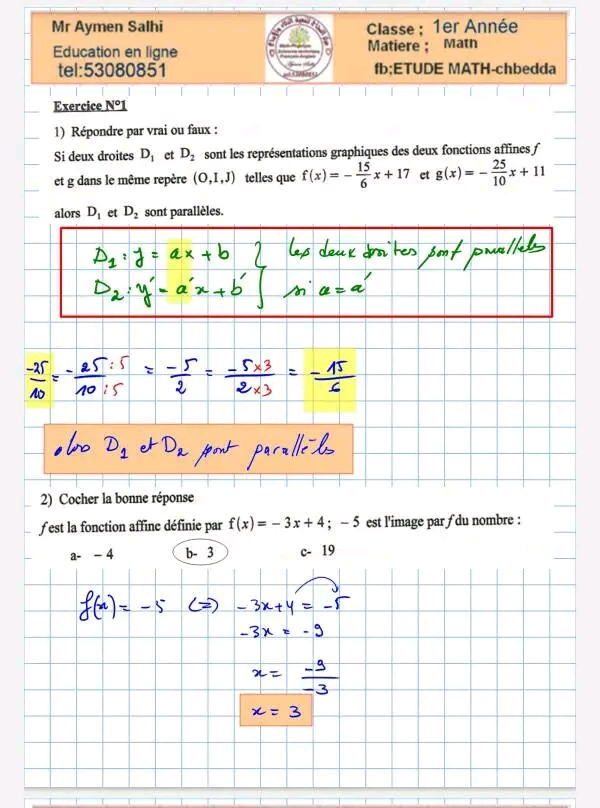 Mr Aymen Salhi
Education en ligne
tel:53080851
Classe ; 1er Année
Matiere ; Math
fb;ETUDE MATH-chbedda
Exercice N°1
1) Répondre par vrai ou faux :
Si deux droites D₁ et D₂ sont les représentations graphiques des deux fonctions affines f
et g dans le même repère (O,I,J) telles que f(x) = - 15/6 x + 17 et g(x) = - 25/10 x + 11
alors D₁ et D₂ sont parallèles.
D₁ : y = ax + b } les deux droites sont parallèles
D₂ : y' = a'x + b' } si a = a'
-25/10 = - 25:5/10:5 = -5/2 = -5×3/2×3 = - 15/6
alors D₁ et D₂ sont parallèls
2) Cocher la bonne réponse
f est la fonction affine définie par f(x) = - 3x + 4 ; - 5 est l'image par f du nombre :
a- - 4 b- 3 c- 19
f(x) = -5 (=) -3x+4 = -5
-3x = -9
x = -9/-3
x = 3